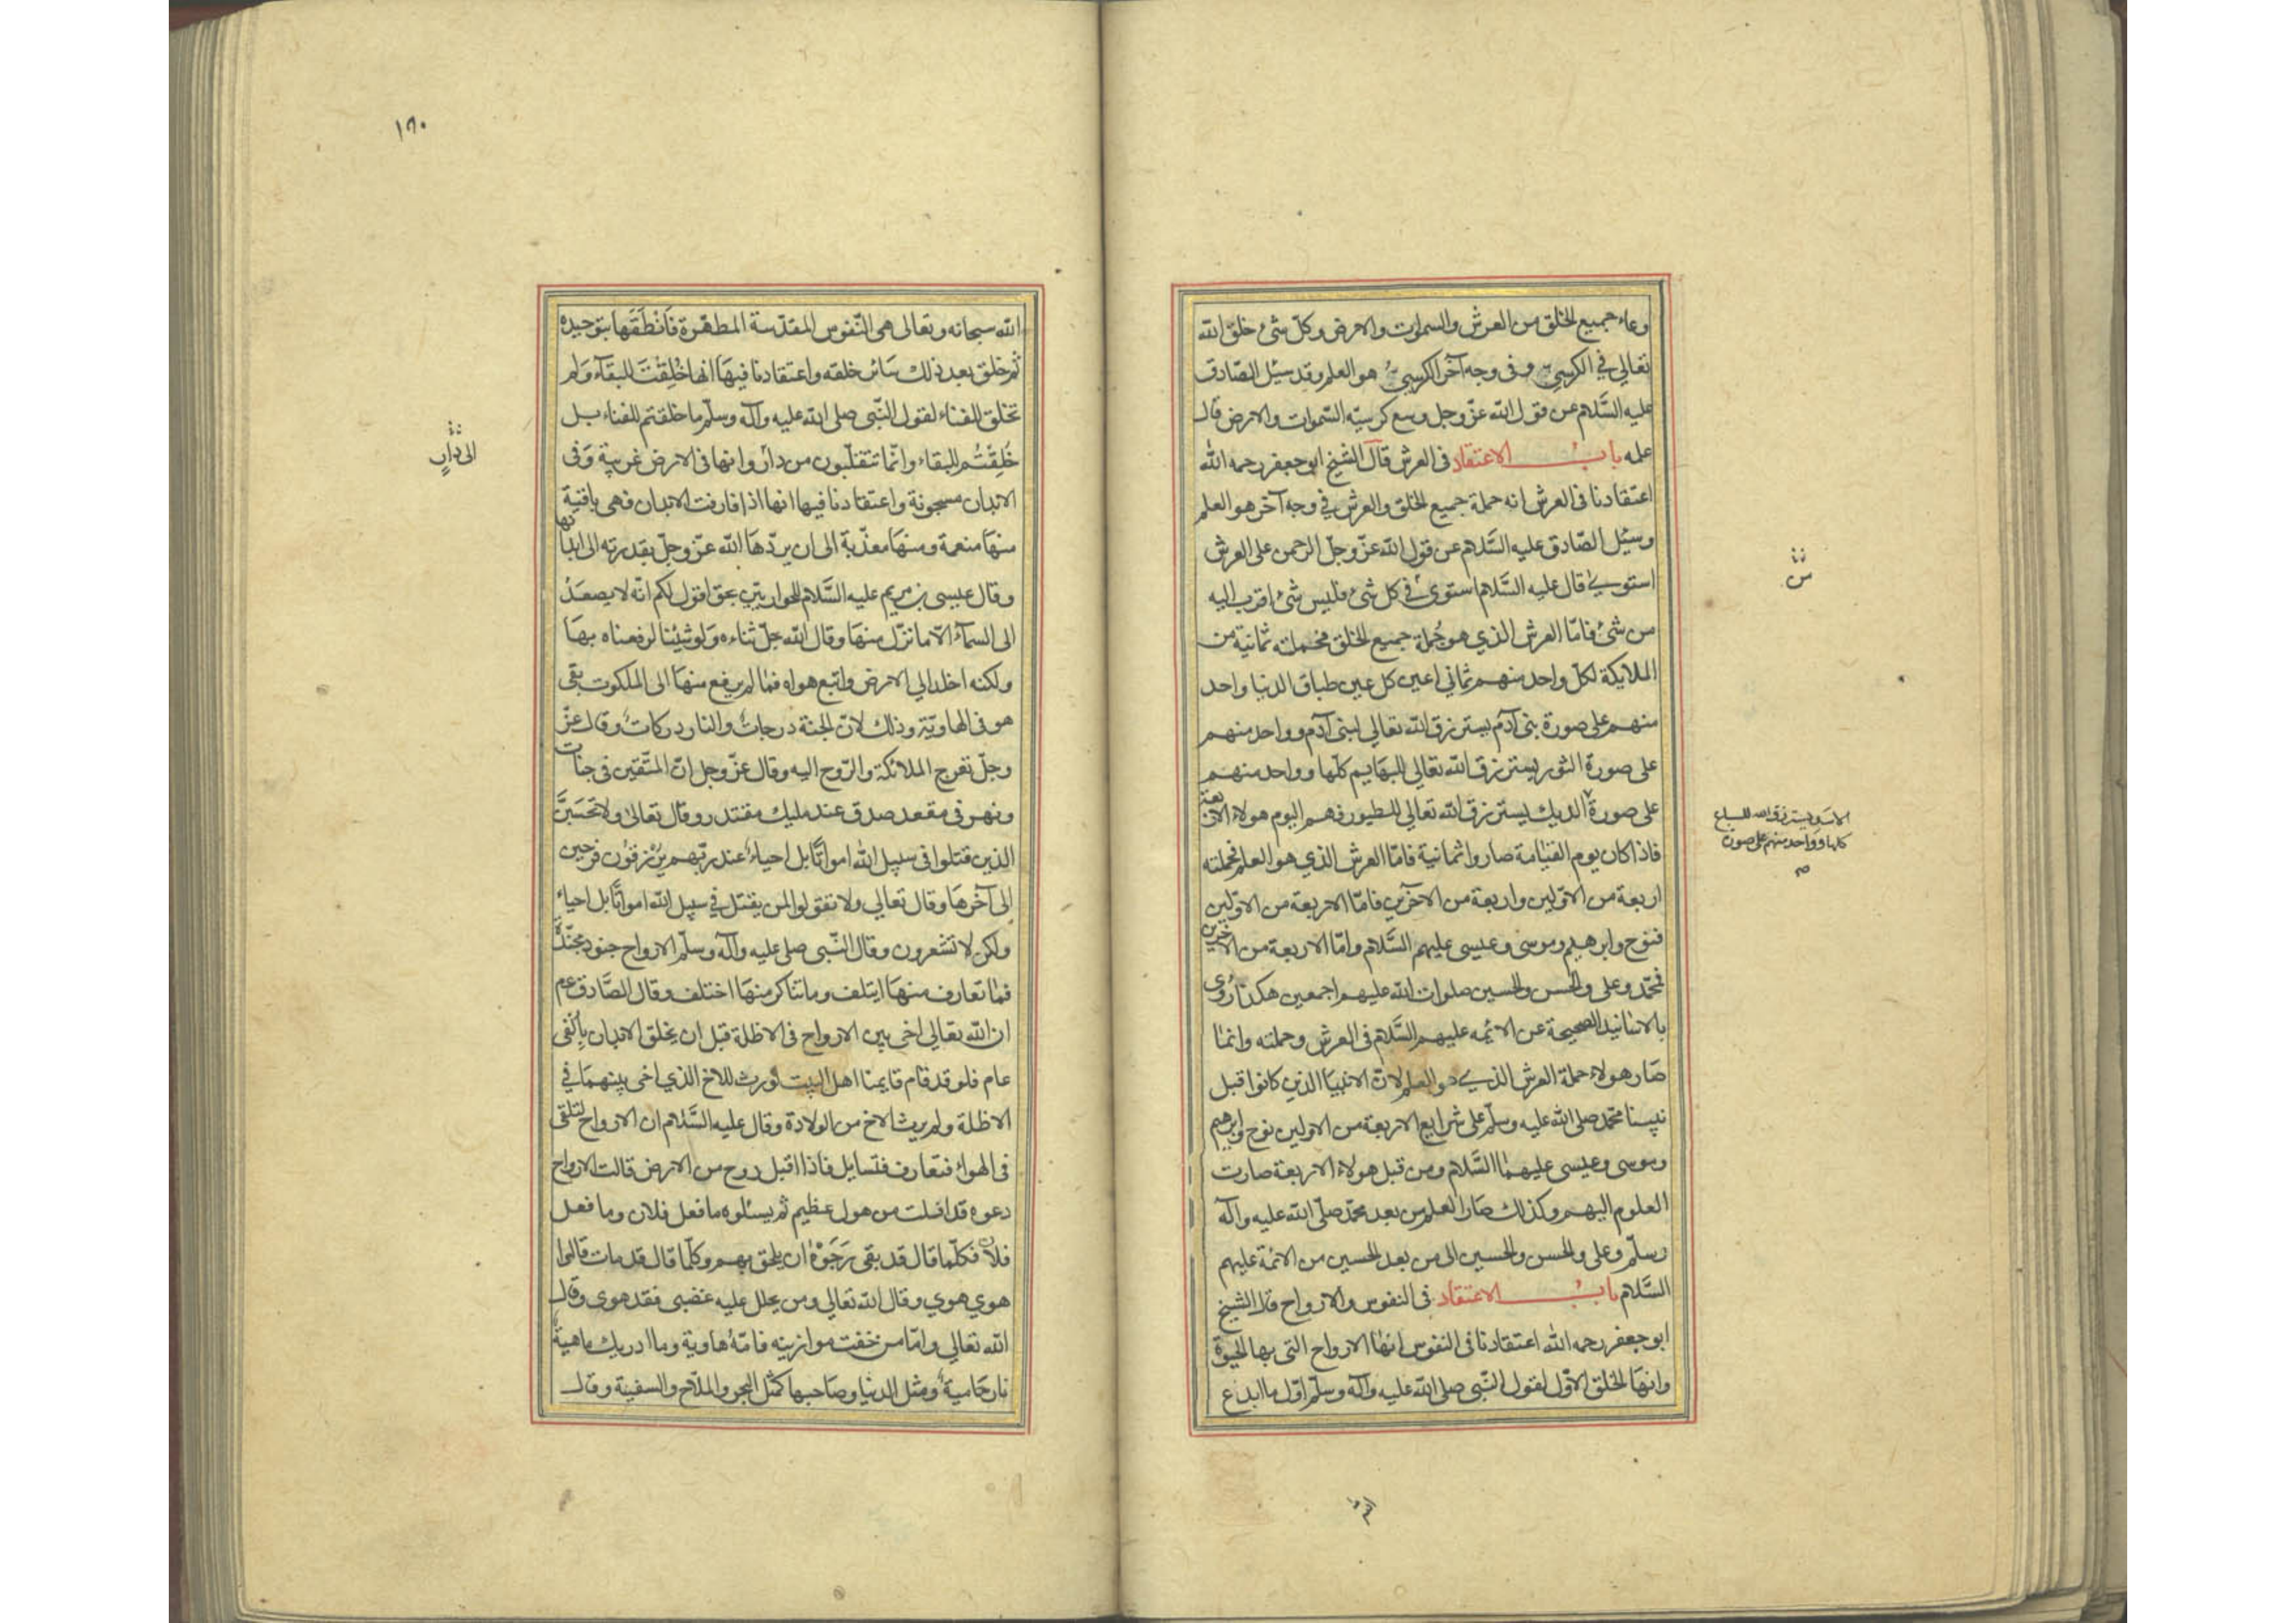 وعاء جميع الخلق من العرش والسموات والارض وكل شئ خلق الله
تعالي في الكرسي وفى وجه آخر الكرسي هو العلم وقد سئل الصّادق
عليه السَّلام عن قول الله عزّ وجل وسع كرسيّه السّموات والارض قال
علمه باب الاعتقاد فى العرش قال الشيخ ابو جعفر رحمه الله
اعتقادنا فى العرش انه حملة جميع الخلق والعرش في وجه آخر هو العلم
وسئل الصّادق عليه السَّلام عن قول الله عزّ وجلّ الرحمن على العرش
استوي قال عليه السَّلام استوى في كل شئ فليس شئ اقرب اليه
من شئ فامّا العرش الذي هو حُملة جميع الخلق فحملته ثمانية من
الملايكة لكلّ واحد منهم ثماني اعين كل عين طباق الدنيا واحد
منهم على صورة بنى آدم يسترزق الله تعالي لبنى آدم وواحد منهم
على صورة الثور يسترزق الله تعالي للبهايم كلّها وواحد منهم
على صورة الديك يسترزق الله تعالي للطيور فهم اليوم هولاء الاربعة
فاذا كان يوم القيٰامة صاروا ثمانية فامّا العرش الذي هو العلم فحملته
اربعة من الاوّلين واربعة من الآخرين فامّا الاربعة من الاوّلين
فنوح وابرهيم وموسى وعيسى عليهم السَّلام وامّا الاربعة من الاخرين
فمحمّد وعلى والحسن والحسين صلوات الله عليهم اجمعين هكذا روى
بالاسانيد الصحيحة عن الائمه عليهم السَّلام فى العرش وحملته وانما
صَار هولاء حملة العرش الذي هو العلم لانّ الانبيا الذين كانوا قبل
نبينا محمّد صلى الله عليه وسلّم على شرايع الاربعة من الاولين نوح وابرهيم
وموسى وعيسى عليهما السَّلام ومن قبل هولاء الاربعة صارت
العلوم اليهم وكذلك صَار العلم من بعد محمّد صلّى الله عليه وآله
وسلّم وعلى والحسن والحسين الى من بعد الحسين من الائمّة عليهم
السَّلام باب الاعتقاد فى النفوس والارواح قال الشيخ
ابو جعفر رحمه الله اعتقادنا فى النفوس انهٰا الارواح التى بها الحيوة
وانهَا الخلق الاوّل لقول النّبى صلى الله عليه وآله وسلّم اوّل ما ابدع
الاسد يسترزق الله للسباع
كلها وواحد منهم على صورة
١٦٠
الله سبحانه وتعالى هى النّفوس المقدّسة المطهّرة فَاَنْطَقَها بتوحيده
ثم خلق بعد ذلك سَائر خلقه واعتقادنا فيهَا انها خُلِقَتْ للبقآء وَلم
تخلق للفناء لقول النّبى صلى الله عليه وآله وسلّم ما خلقتم للفناء بل
خُلِقْتُم للبقاء وانّما تنقلبون من دار وانها فى الارض غريبة وَفى
الابدان مسجونة واعتقادنا فيها انها اذا فارقت الابدان فهى باقية
منهَا منعمة ومنهَا معذّبة الى ان يردّهَا الله عزّ وجلّ بقدرته الى ابدانها
وقال عيسى بن مريم عليه السَّلام للحواريّين بحق اقول لكم انّه لا يصعَدُ
الى السمآء الّا ما نزل منهَا وقال الله جلّ ثناءه وَلو شِئنا لرفعناه بهَا
ولكنه اخلد الي الارض واتبع هواه فما لم يرفع منهَا الى الملكوت بقى
هو فى الهاويّة وذلك لانّ الجنة درجاتٌ والنار دركاتٌ وقال عزّ
وجلّ تعرج الملائكة والرّوح اليه وقال عزّ وجل انّ المتّقين فى جنات
ونهر فى مقعد صدق عند مليك مقتدر وقال تعالىٰ ولا تحسَبَنّ
الذين قتلوا فى سبيل الله امواتًا بل احياءٌ عند ربّهم يرْزقون فرحين
الى آخرهَا وقال تعالي ولا تقولوا لمن يقتل في سبيل الله امواتًا بل احياء
ولكن لا تشعرون وقال النّبى صلى عليه وآله وسلّم الارواح جنود مجنّدة
فما تعارف منهَا ايتلف وما تناكر منهَا اختلف وقال الصَّادق عم
ان الله تعالي اخى بين الارواح فى الاظلة قبل ان يخلق الابدان بِاَلْفى
عام فلو قد قام قايمنا اهل البيت لورث للاخ الذي اخى بينهمَا في
الاظلة ولم يرث الاخ من الولادة وقال عليه السَّلام ان الارواح لتلتقى
فى الهواء فتعارف فتسايل فاذا اقبل روح من الارض قالت الارواح
دعوه قد افلت من هول عظيم ثم يسئلوه ما فعل فلان وما فعل
فلان فكلّما قال قد بقى رَجَوْهُ ان يلحق بهم وكلّما قال قد مات قالوا
هوي هوي وقال الله تعالي ومن يحلل عليه غضبى فقد هوى وقال
الله تعالي وامّا من خفت موازينه فامّهُ هاوية وما ادريك ماهية
نار حَامية ومثل الدنيا وصَاحبها كمثل البحر والملّاح والسفينة وقال
الى دارٍ